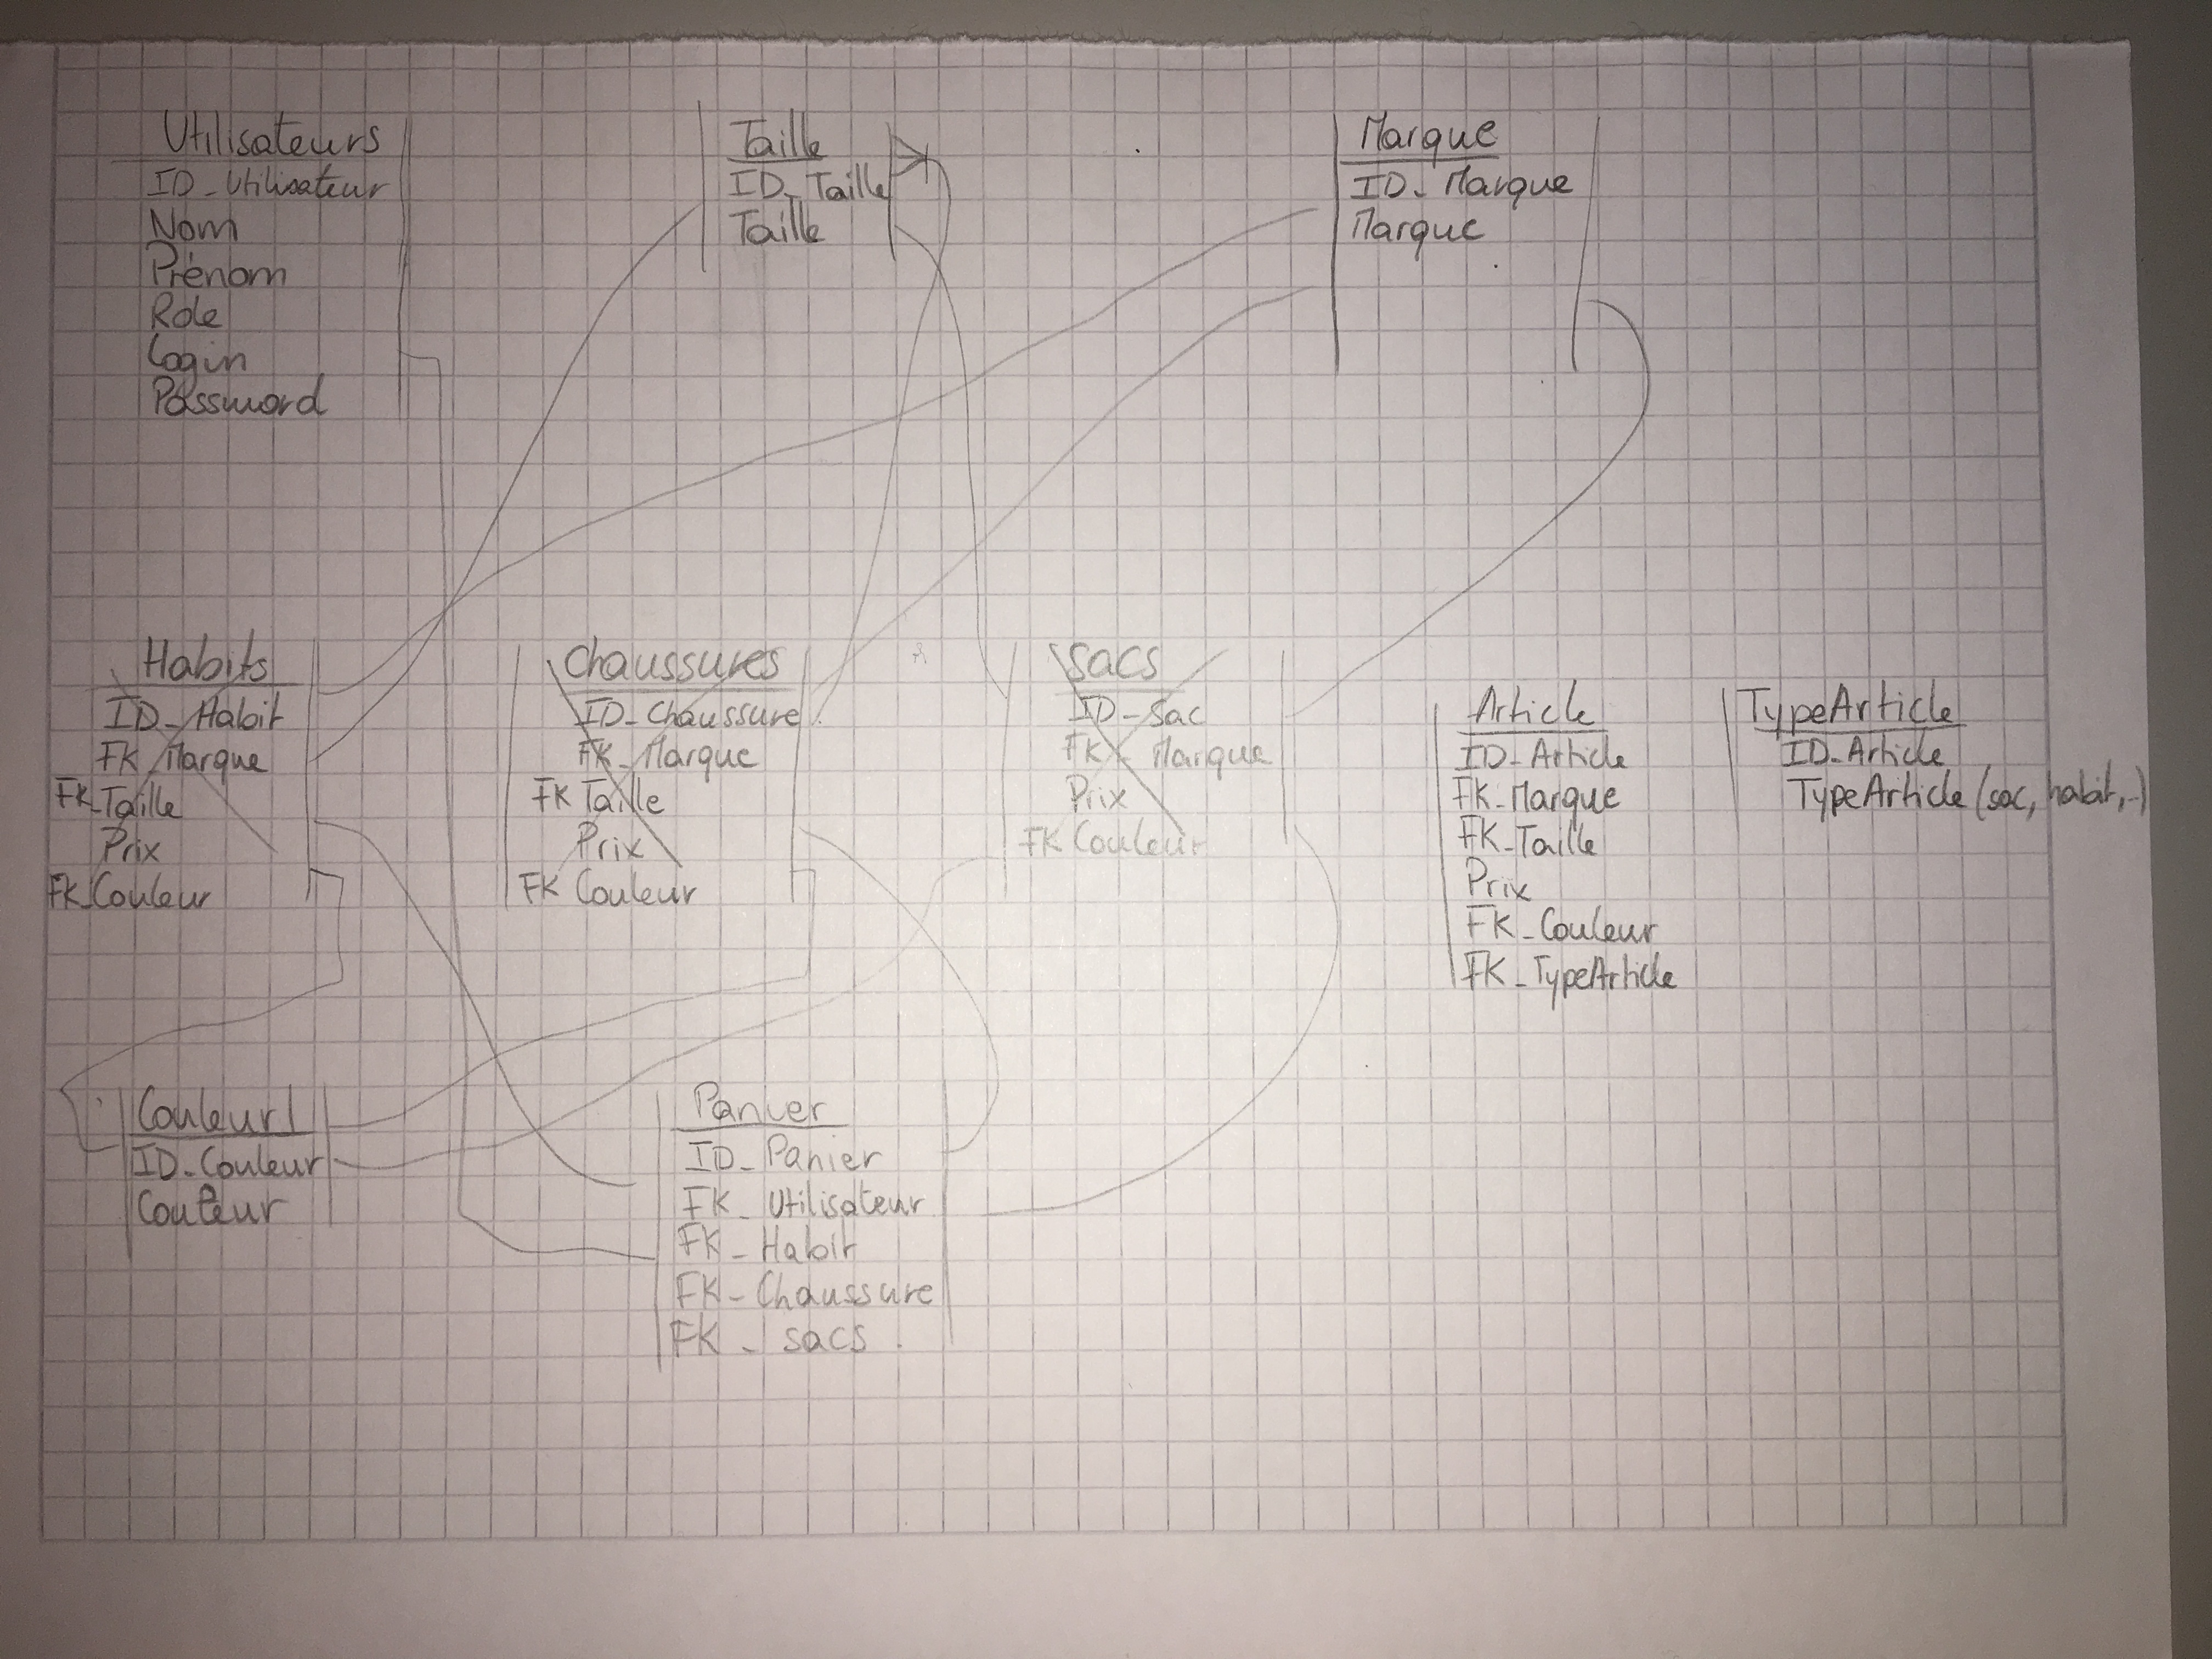 Utilisateurs
ID_Utilisateur
Nom
Prénom
Role
Login
Password
Taille
ID_Taille
Taille
Marque
ID_Marque
Marque
Habits
ID_Habit
FK_Marque
FK_Taille
Prix
FK_Couleur
Chaussures
ID_Chaussure
FK_Marque
FK Taille
Prix
FK Couleur
Sacs
ID_Sac
FK_Marque
Prix
FK Couleur
Article
ID_Article
FK_Marque
FK_Taille
Prix
FK_Couleur
FK_TypeArticle
TypeArticle
ID_Article
TypeArticle (sac, habit,..)
Couleur
ID_Couleur
Couleur
Panier
ID_Panier
FK_Utilisateur
FK_Habit
FK_Chaussure
FK_sacs